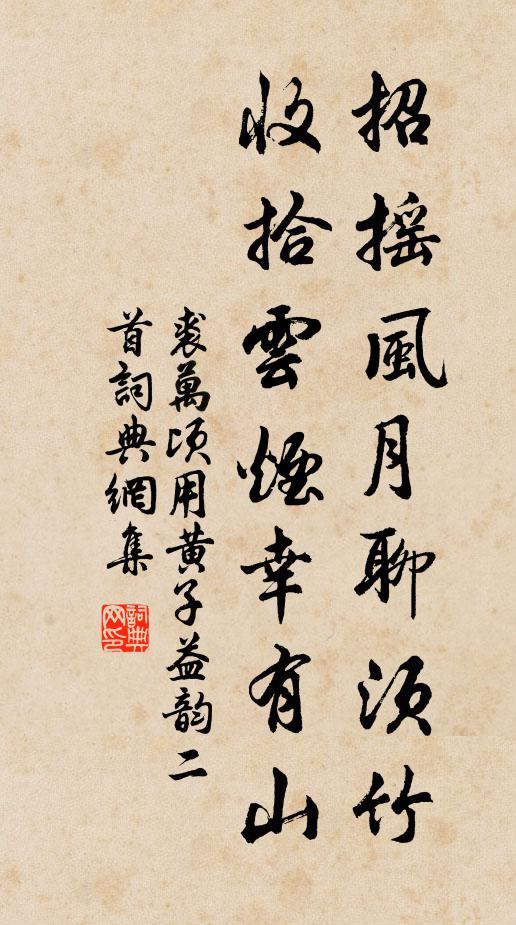 招搖風月聊須竹
收拾雲煙幸有山
裘萬頃用黃子益韵二
首詞典網集
詞典網印